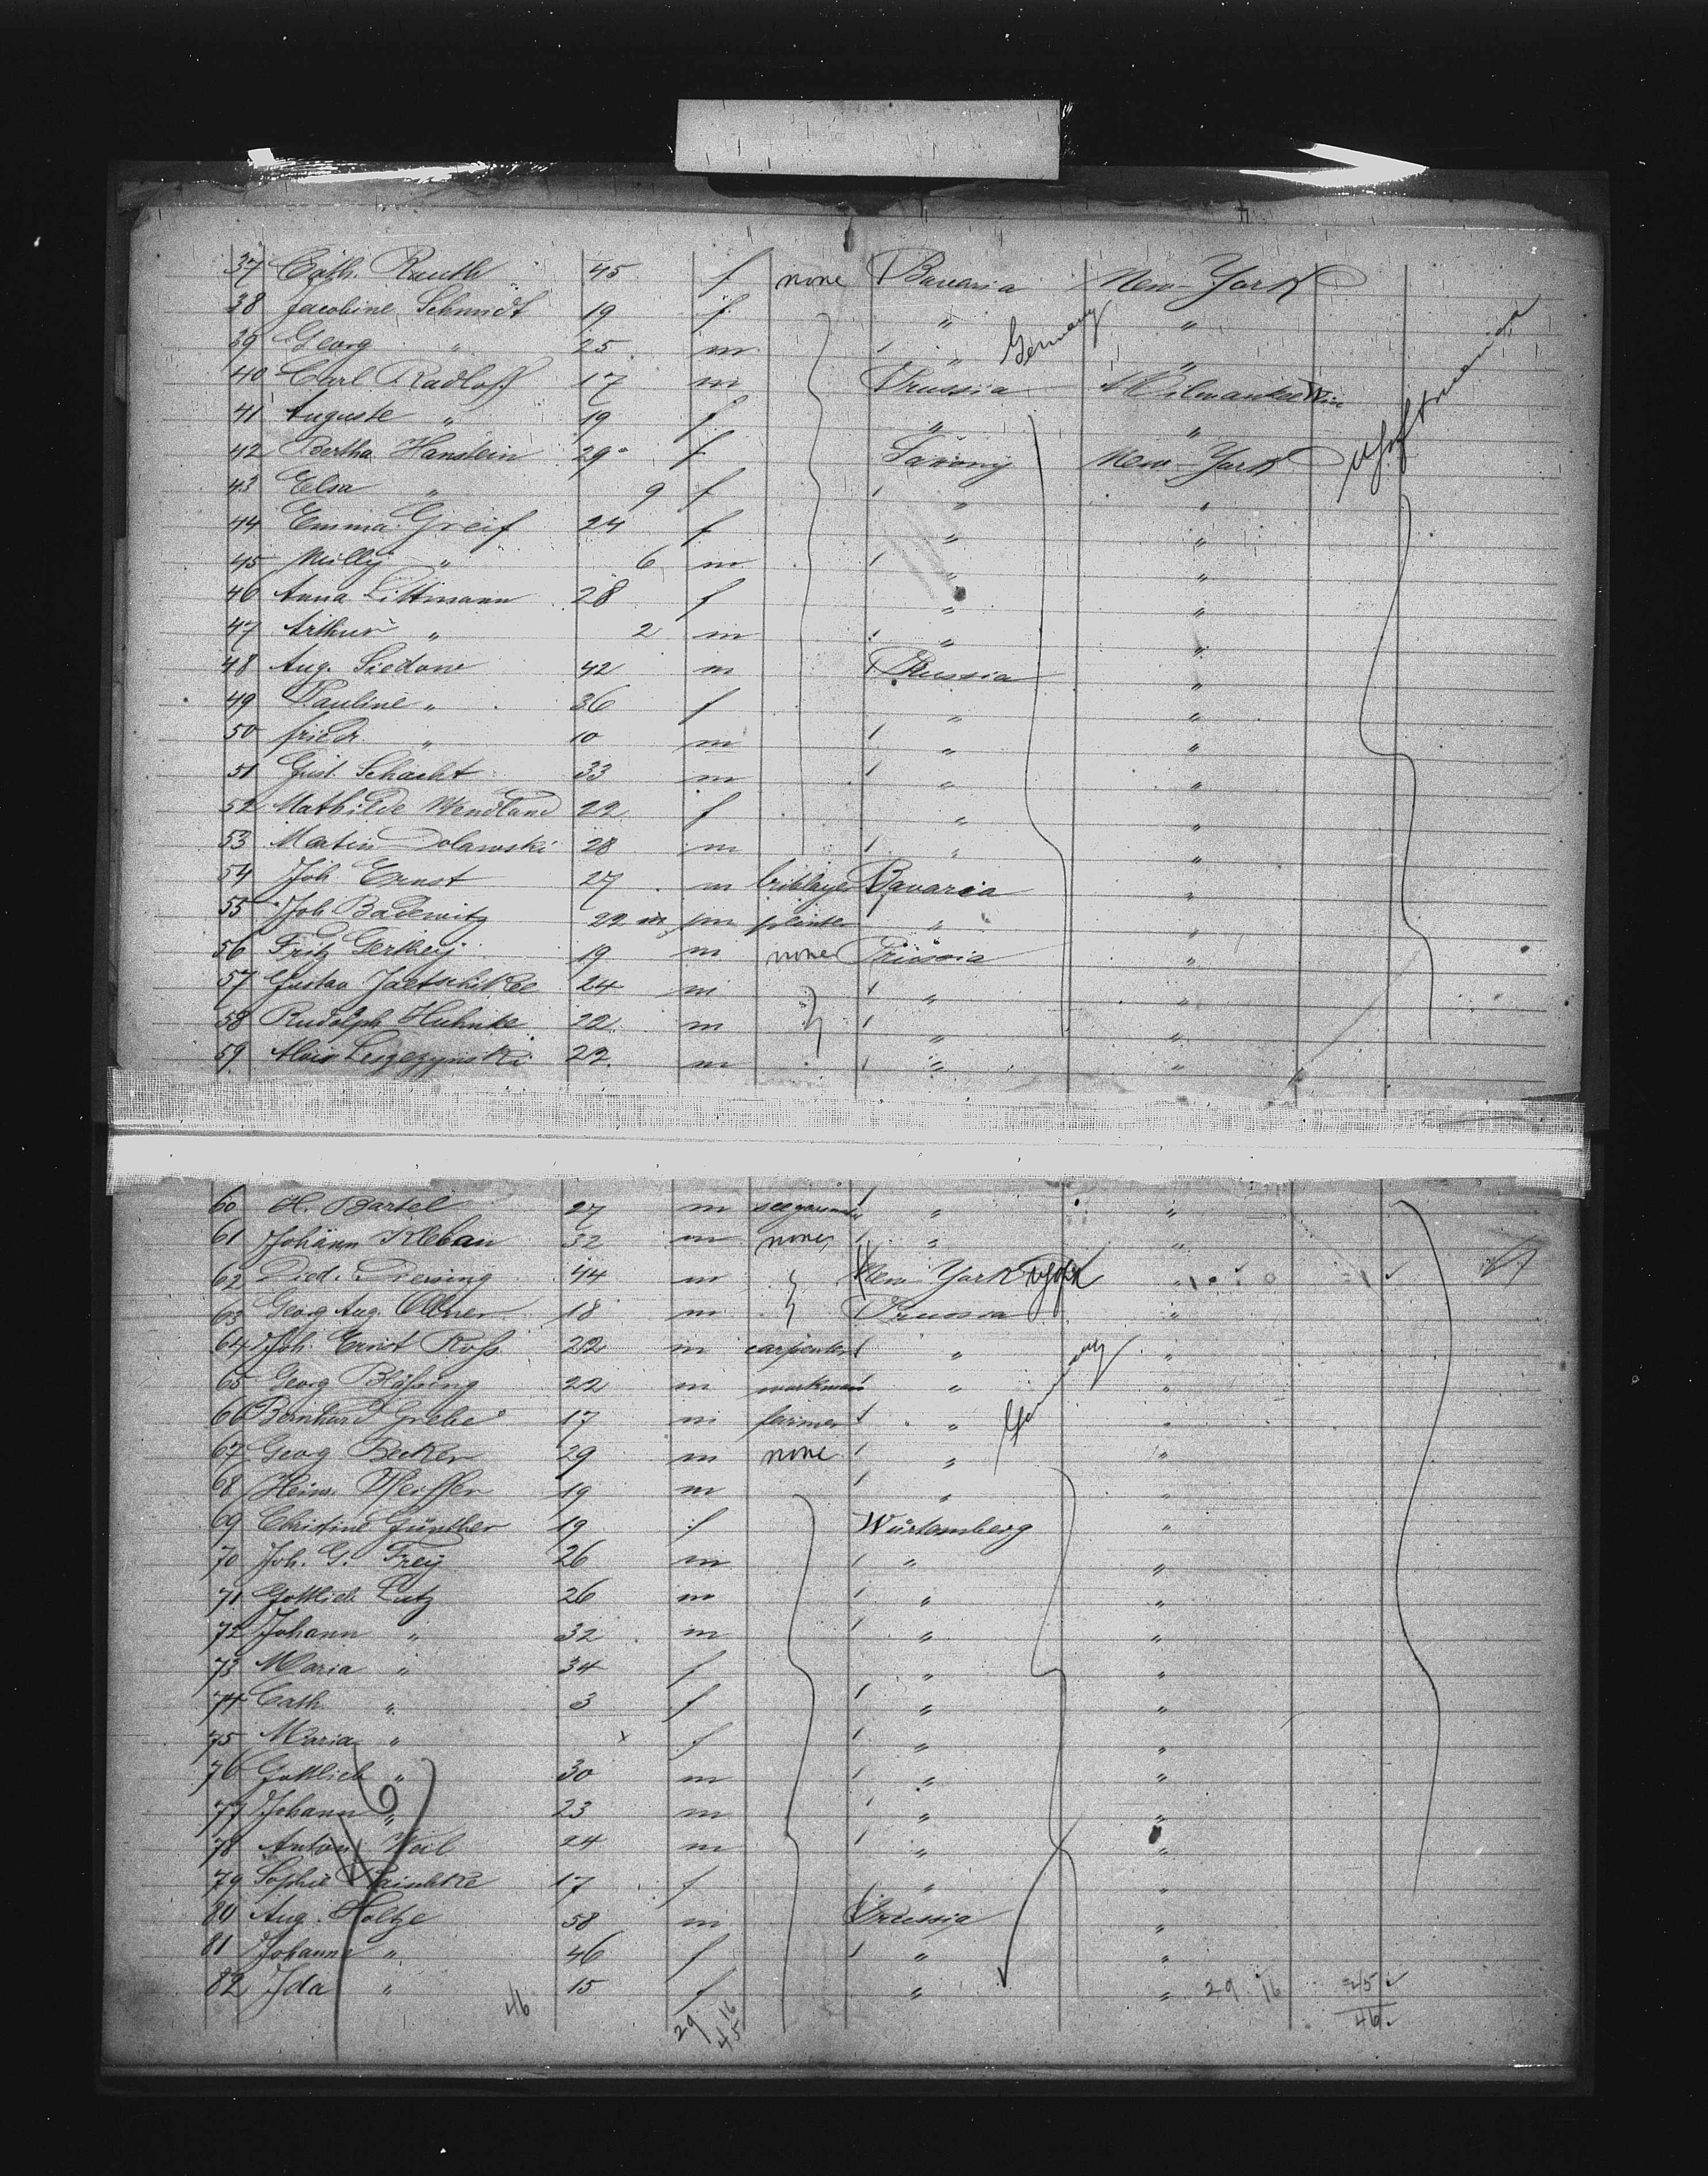 37 Cath. Rauth 45 f none Bavaria New-York
38 Jacobine Schmidt 19 f " "
39 Georg " 25 m " Germany "
40 Carl Radloff 17 m Prussia Milwaukee Win
41 Auguste " 19 f " "
42 Bertha Hanstein 29 f Saxony New-York
43 Elsa " 9 f " "
44 Emma Greif 24 f " "
45 Willy " 6 m " "
46 Anna Littmann 28 f " "
47 Arthur " 2 m " "
48 Aug. Siedow 42 m Prussia "
49 Pauline " 36 f " "
50 friedr. " 10 m " "
51 Gust. Schacht 33 m " "
52 Mathilde Wendland 22 f " "
53 Martin Dolawski 28 m " "
54 Joh Ernst 27 m briklayer Bavaria "
55 Joh Badewitz 22 m "  "
56 Fritz Gerkey 19 m none Prussia "
57 Gustav 24 m " "
58 Rudolph Huhnke 22 m " "
59 22 m " "
60 H. Bartel 27 m " "
61 Johann Kleban 32 m none " "
62 Died. Diersing 44 m New York "
63 Georg Aug. 18 m Prussia "
64 Joh. Ernst Roß 22 m carpenter " "
65 Georg Bläsing 22 m workman " Germany "
66 Bernhard Grebe 17 m farmer " "
67 Georg Becker 29 m none " "
68 Heinr. Pfeiffer 19 m " "
69 Christine Günther 19 f Würtemberg "
70 Joh. G. Frey 26 m " "
71 Gottlieb Lutz 26 m " "
72 Johann " 32 m " "
73 Maria " 34 f " "
74 Cath. " 3 f " "
75 Maria " x f " "
76 Gottlieb " 30 m " "
77 Johann " 23 m " "
78 Anton Weil 24 m " "
79 Sophie 17 f " "
80 Aug. Holtze 58 m Prussia "
81 Johanne " 46 f " "
82 Ida " 15 f " " 29 16 =45
46 29 16 45 46